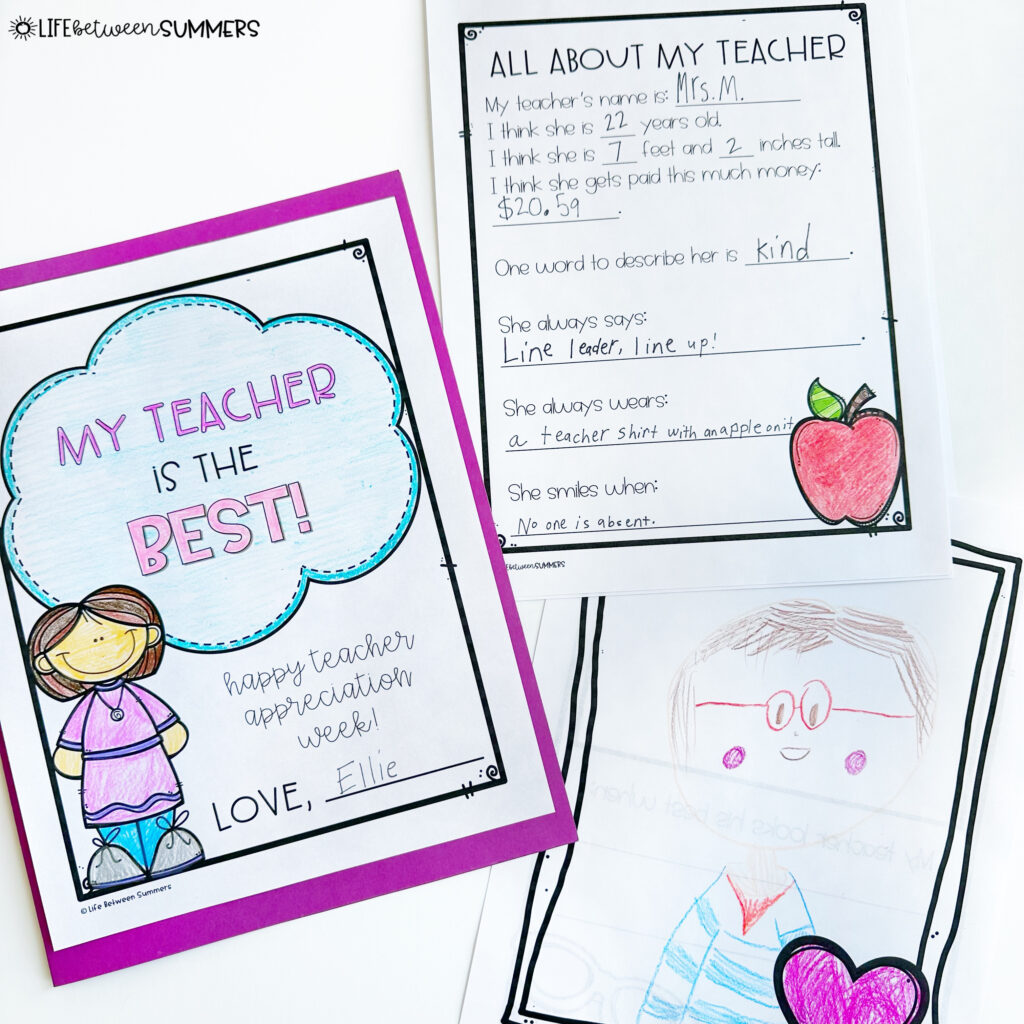 LIFE between SUMMERS
ALL ABOUT MY TEACHER
My teacher's name is: Mrs. M.
I think she is 22 years old.
I think she is 7 feet and 2 inches tall.
I think she gets paid this much money:
$20.59.
One word to describe her is kind.
She always says:
Line leader, line up!.
She always wears:
a teacher shirt with an apple on it
She smiles when:
No one is absent.
LIFE between SUMMERS
MY TEACHER
IS THE
BEST!
happy teacher
appreciation
week!
LOVE, Ellie
© Life Between Summers
My teacher looks his best when